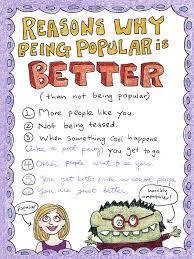 REASONS WHY
BEING POPULAR is
BETTER
(than not being popular)
1 More people like you.
2 Not being teased.
3 When something cool happens
(like a pool party) you get to go
4 Other people want to be you.
5 You get better parts in school plays
6 You are just better.
Popular
horribly
unpopular!